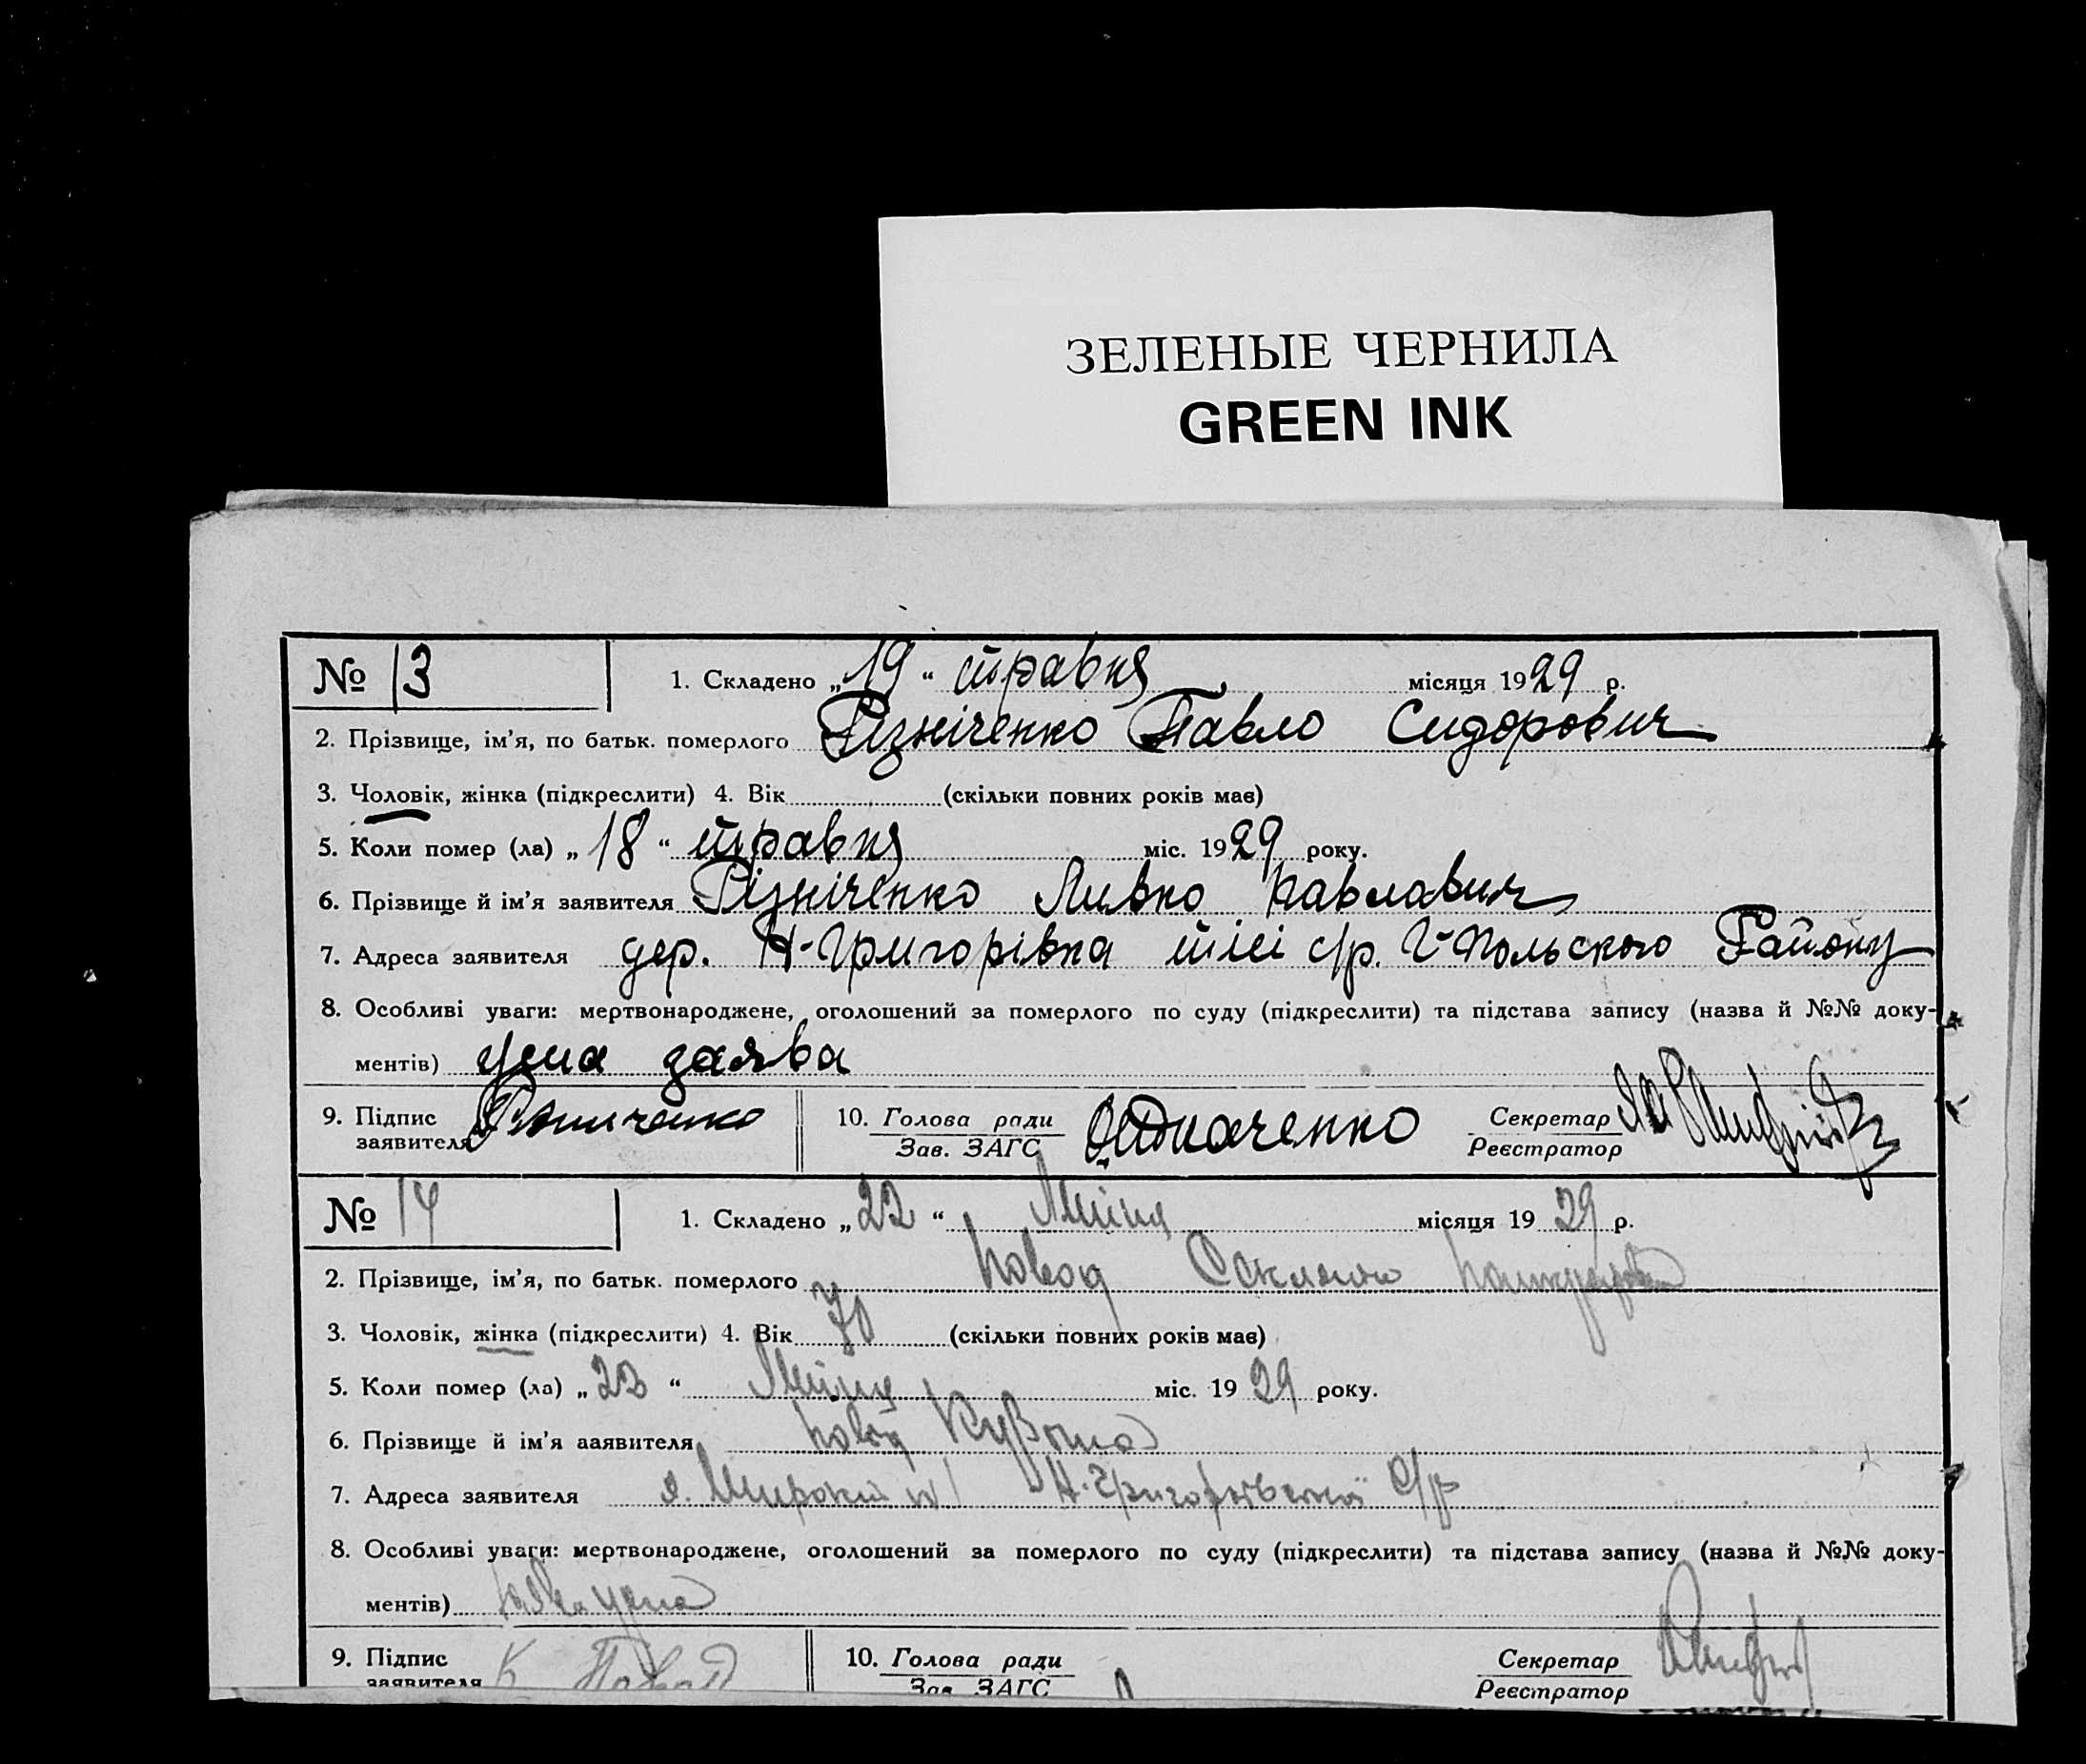 ЗЕЛЕНЫЕ ЧЕРНИЛА
GREEN INK
№ 13 1. Складено „19“ травня місяця 1929 р.
2. Прізвище, ім’я, по батьк. померлого Різніченко Павло Сидорович
3. Чоловік, жінка (підкреслити) 4. Вік (скільки повних років має)
5. Коли помер (ла) „18“ травня міс. 1929 року.
6. Прізвище й ім’я заявителя Різніченко Павлавич
7. Адреса заявителя дер. Н-Григорівка тієї с/р. Польского Району
8. Особливі уваги: мертвонароджене, оголошений за померлого по суду (підкреслити) та підстава запису (назва й №№ доку-
ментів) усна заява
9. Підпис 10. Голова ради Секретар
заявителя Зав. ЗАГС Ткаченко Реєстратор
№ 14 1. Складено „22“ місяця 1929 р.
2. Прізвище, ім’я, по батьк. померлого
3. Чоловік, жінка (підкреслити) 4. Вік 70 (скільки повних років має)
5. Коли помер (ла) „ “ міс. 1929 року.
6. Прізвище й ім’я ааявителя
7. Адреса заявителя Н. Григорівської С/р
8. Особливі уваги: мертвонароджене, оголошений за померлого по суду (підкреслити) та підстава запису (назва й №№ доку-
ментів)
9. Підпис 10. Голова ради Секретар
заявителя К Зав. ЗАГС Реєстратор